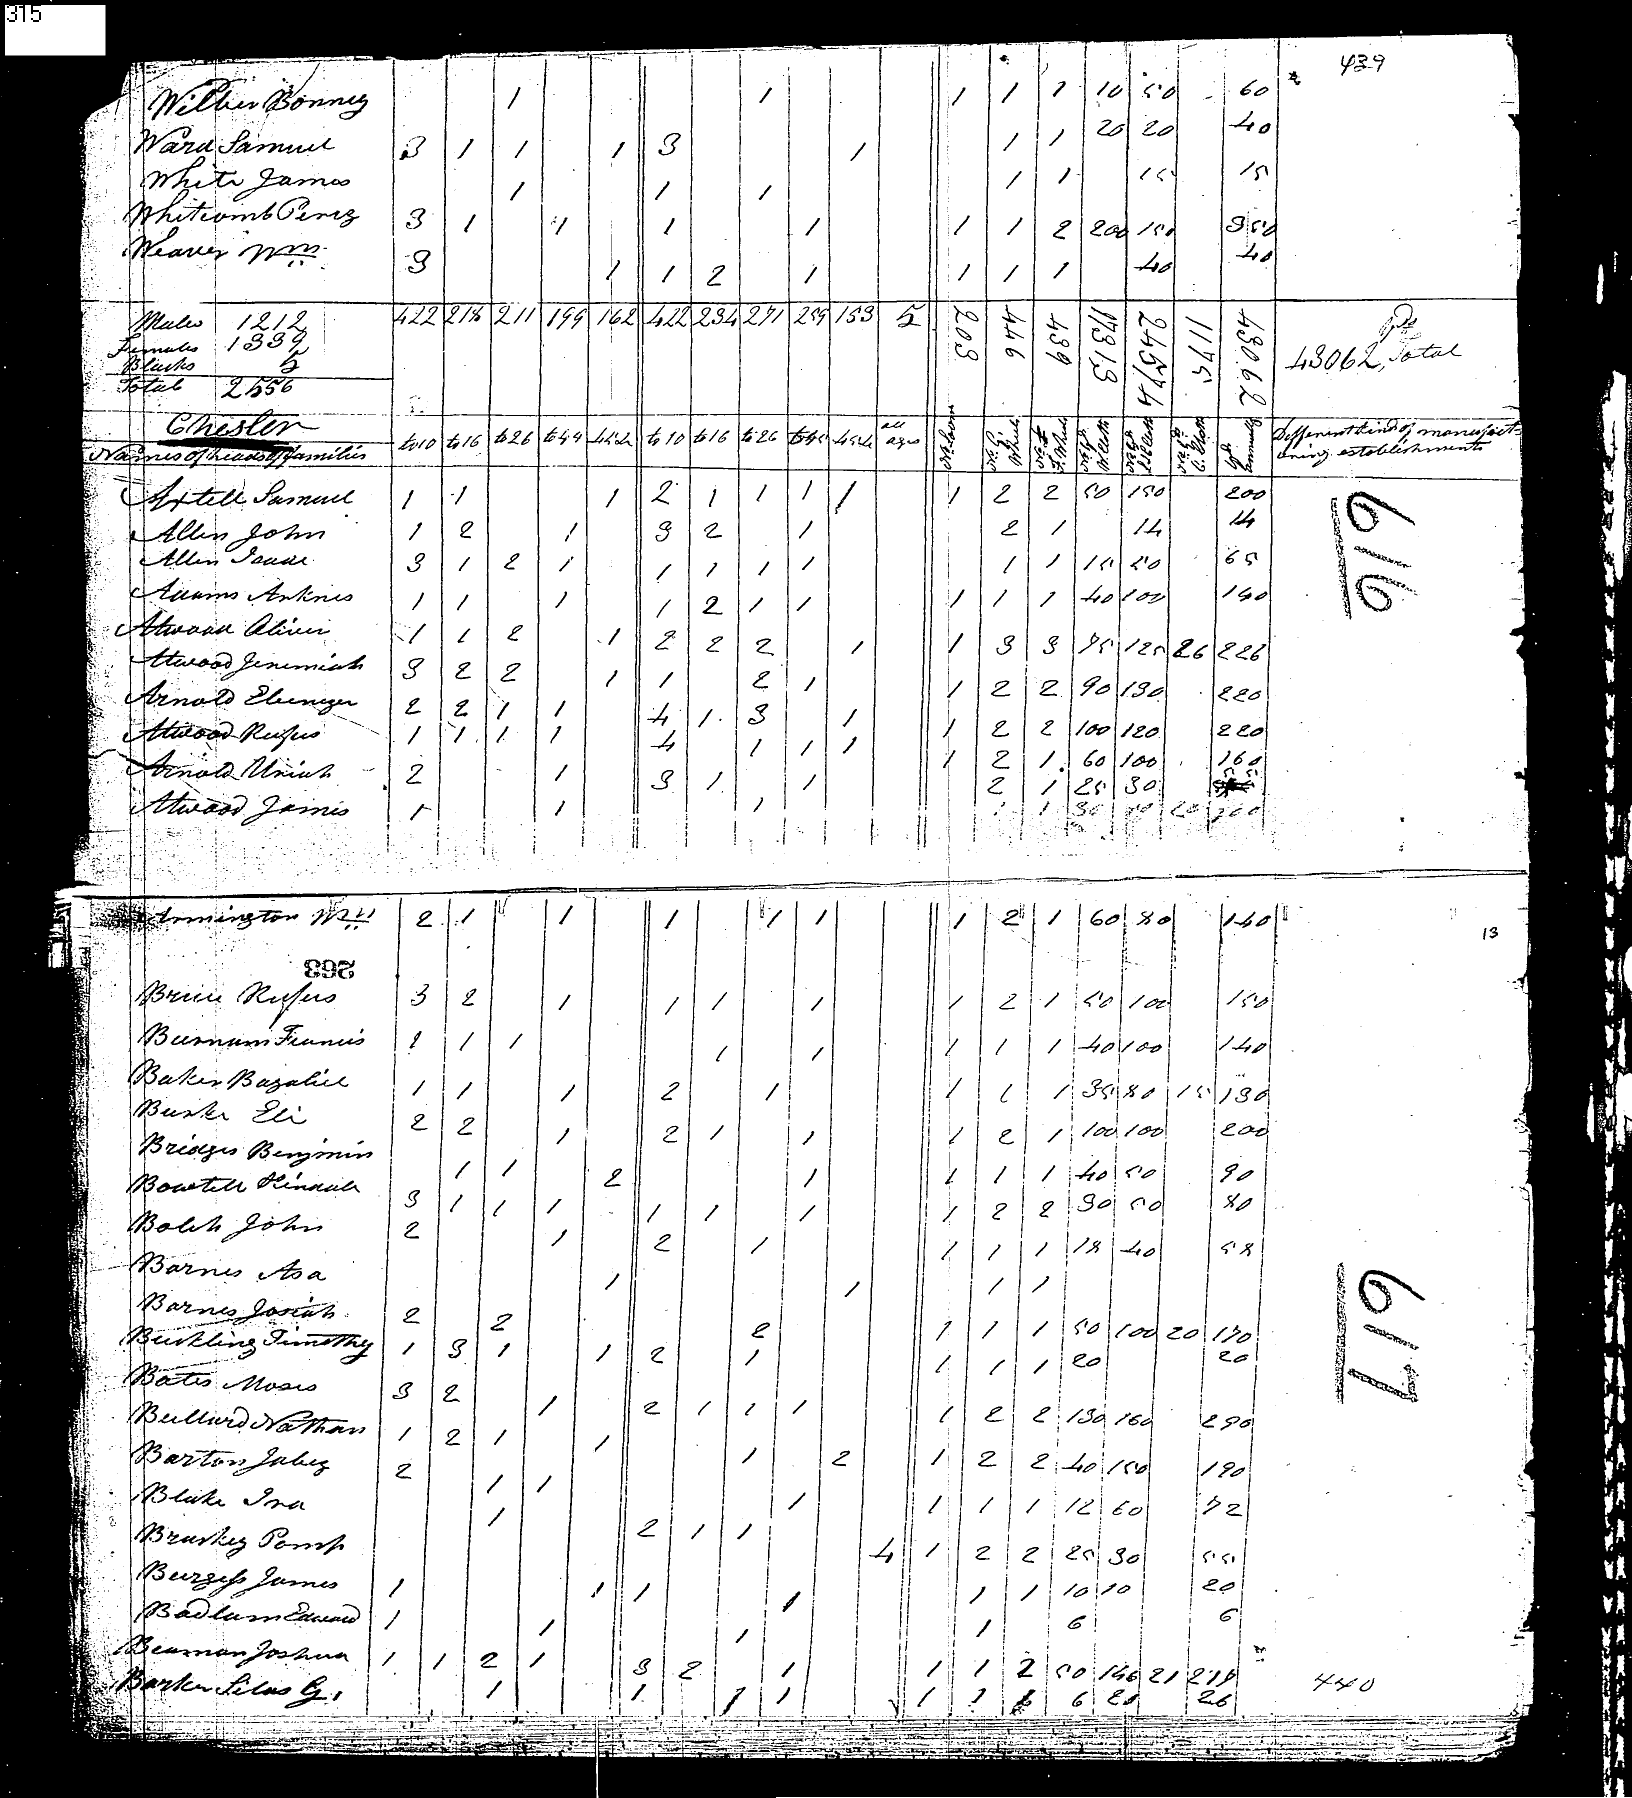 315
439
Wilber Bonney 1 1 1 1 1 10 50 60
Ward Samuel 3 1 1 1 3 1 1 1 20 20 40
White James 1 1 1 1 1 15 15
Whitcomb Perez 3 1 1 1 1 1 1 2 200 150 350
Weaver Wm 3 1 1 2 1 1 1 1 40 40
Males 1212 422 218 211 199 162 422 234 271 259 153 5 203 446 439 17313 24574 1175 43062
Females 1339 43062, Total
Blacks 5
Total 2556
Chester to 10 to 16 to 26 to 44 to 10 to 16 to 26 to 45 all ages
Names of heads of families Different kinds of manufacturing establishments
Axtell Samuel 1 1 1 2 1 1 1 1 1 2 2 50 150 200
Allen John 1 2 1 3 2 1 2 1 14 14
Allen Isaac 3 1 2 1 1 1 1 1 1 1 15 50 65
Adams 1 1 1 1 2 1 1 1 1 1 40 100 140
Atwood Oliver 1 1 2 1 2 2 2 1 1 3 3 75 125 26 226
Atwood Jeremiah 3 2 2 1 1 2 1 1 2 2 90 130 220
Arnold Ebenezer 2 2 1 1 4 1 3 1 1 2 2 100 120 220
Atwood Rufus 1 1 1 1 4 1 1 1 1 2 1 60 100 160
Arnold Uriah 2 1 3 1 1 2 1 25 30
Atwood James 1 1 1 1 1 30 50 20 100
616
Armington Wm 2 1 1 1 1 1 1 2 1 60 80 140
13
263
Bruce Rufus 3 2 1 1 1 1 1 2 1 50 100 150
Burnam Francis 1 1 1 1 1 1 1 1 40 100 140
Baker Bazaliel 1 1 1 2 1 1 1 1 35 80 15 130
Burke Eli 2 2 1 2 1 1 1 2 1 100 100 200
Bridges Benjmin 1 1 2 1 1 1 1 40 50 90
Bowtell 3 1 1 1 1 1 1 1 2 2 30 50 80
Balch John 2 1 2 1 1 1 1 18 40 58
Barnes Asa 1 1 1 1
Barnes Josiah 2 2 2 1 1 1 50 100 20 170
Buckling Timothy 1 3 1 1 2 1 1 1 1 20 20
Bates Moses 3 2 1 2 1 1 1 1 2 2 130 160 290
Bullard Nathan 1 2 1 1 1 2 1 2 2 40 150 190
Barton Jabez 2 1 1 1 1 1 1 12 60 72
Blake Ira 1 2 1 1
Brackey Pomp 4 1 2 2 25 30 55
Burgess James 1 1 1 1 1 1 10 10 20
Badlam Edward 1 1 1 1 6 6
Beaman Joshua 1 1 2 1 3 2 1 1 1 2 50 146 21
Barker Silas G. 1 1 1 1 1 1 6 20 26
617
440